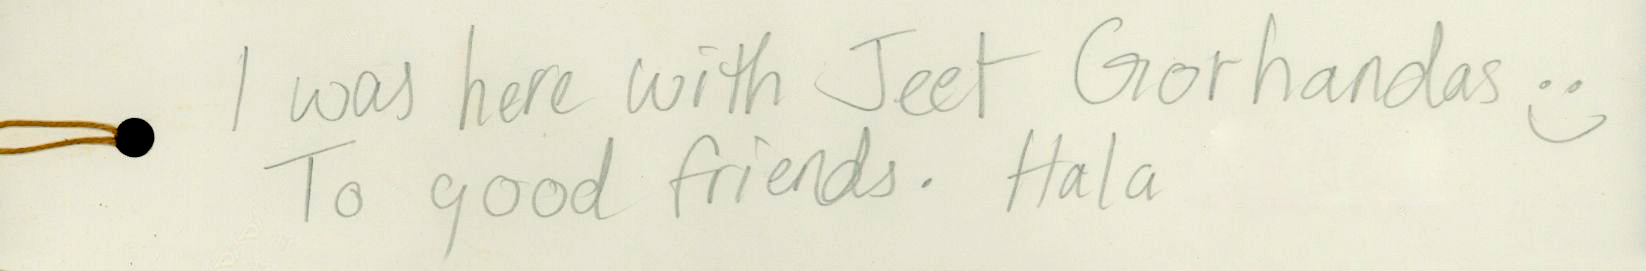 I was here with Jeet Gorhandas :)
To good friends. Hala